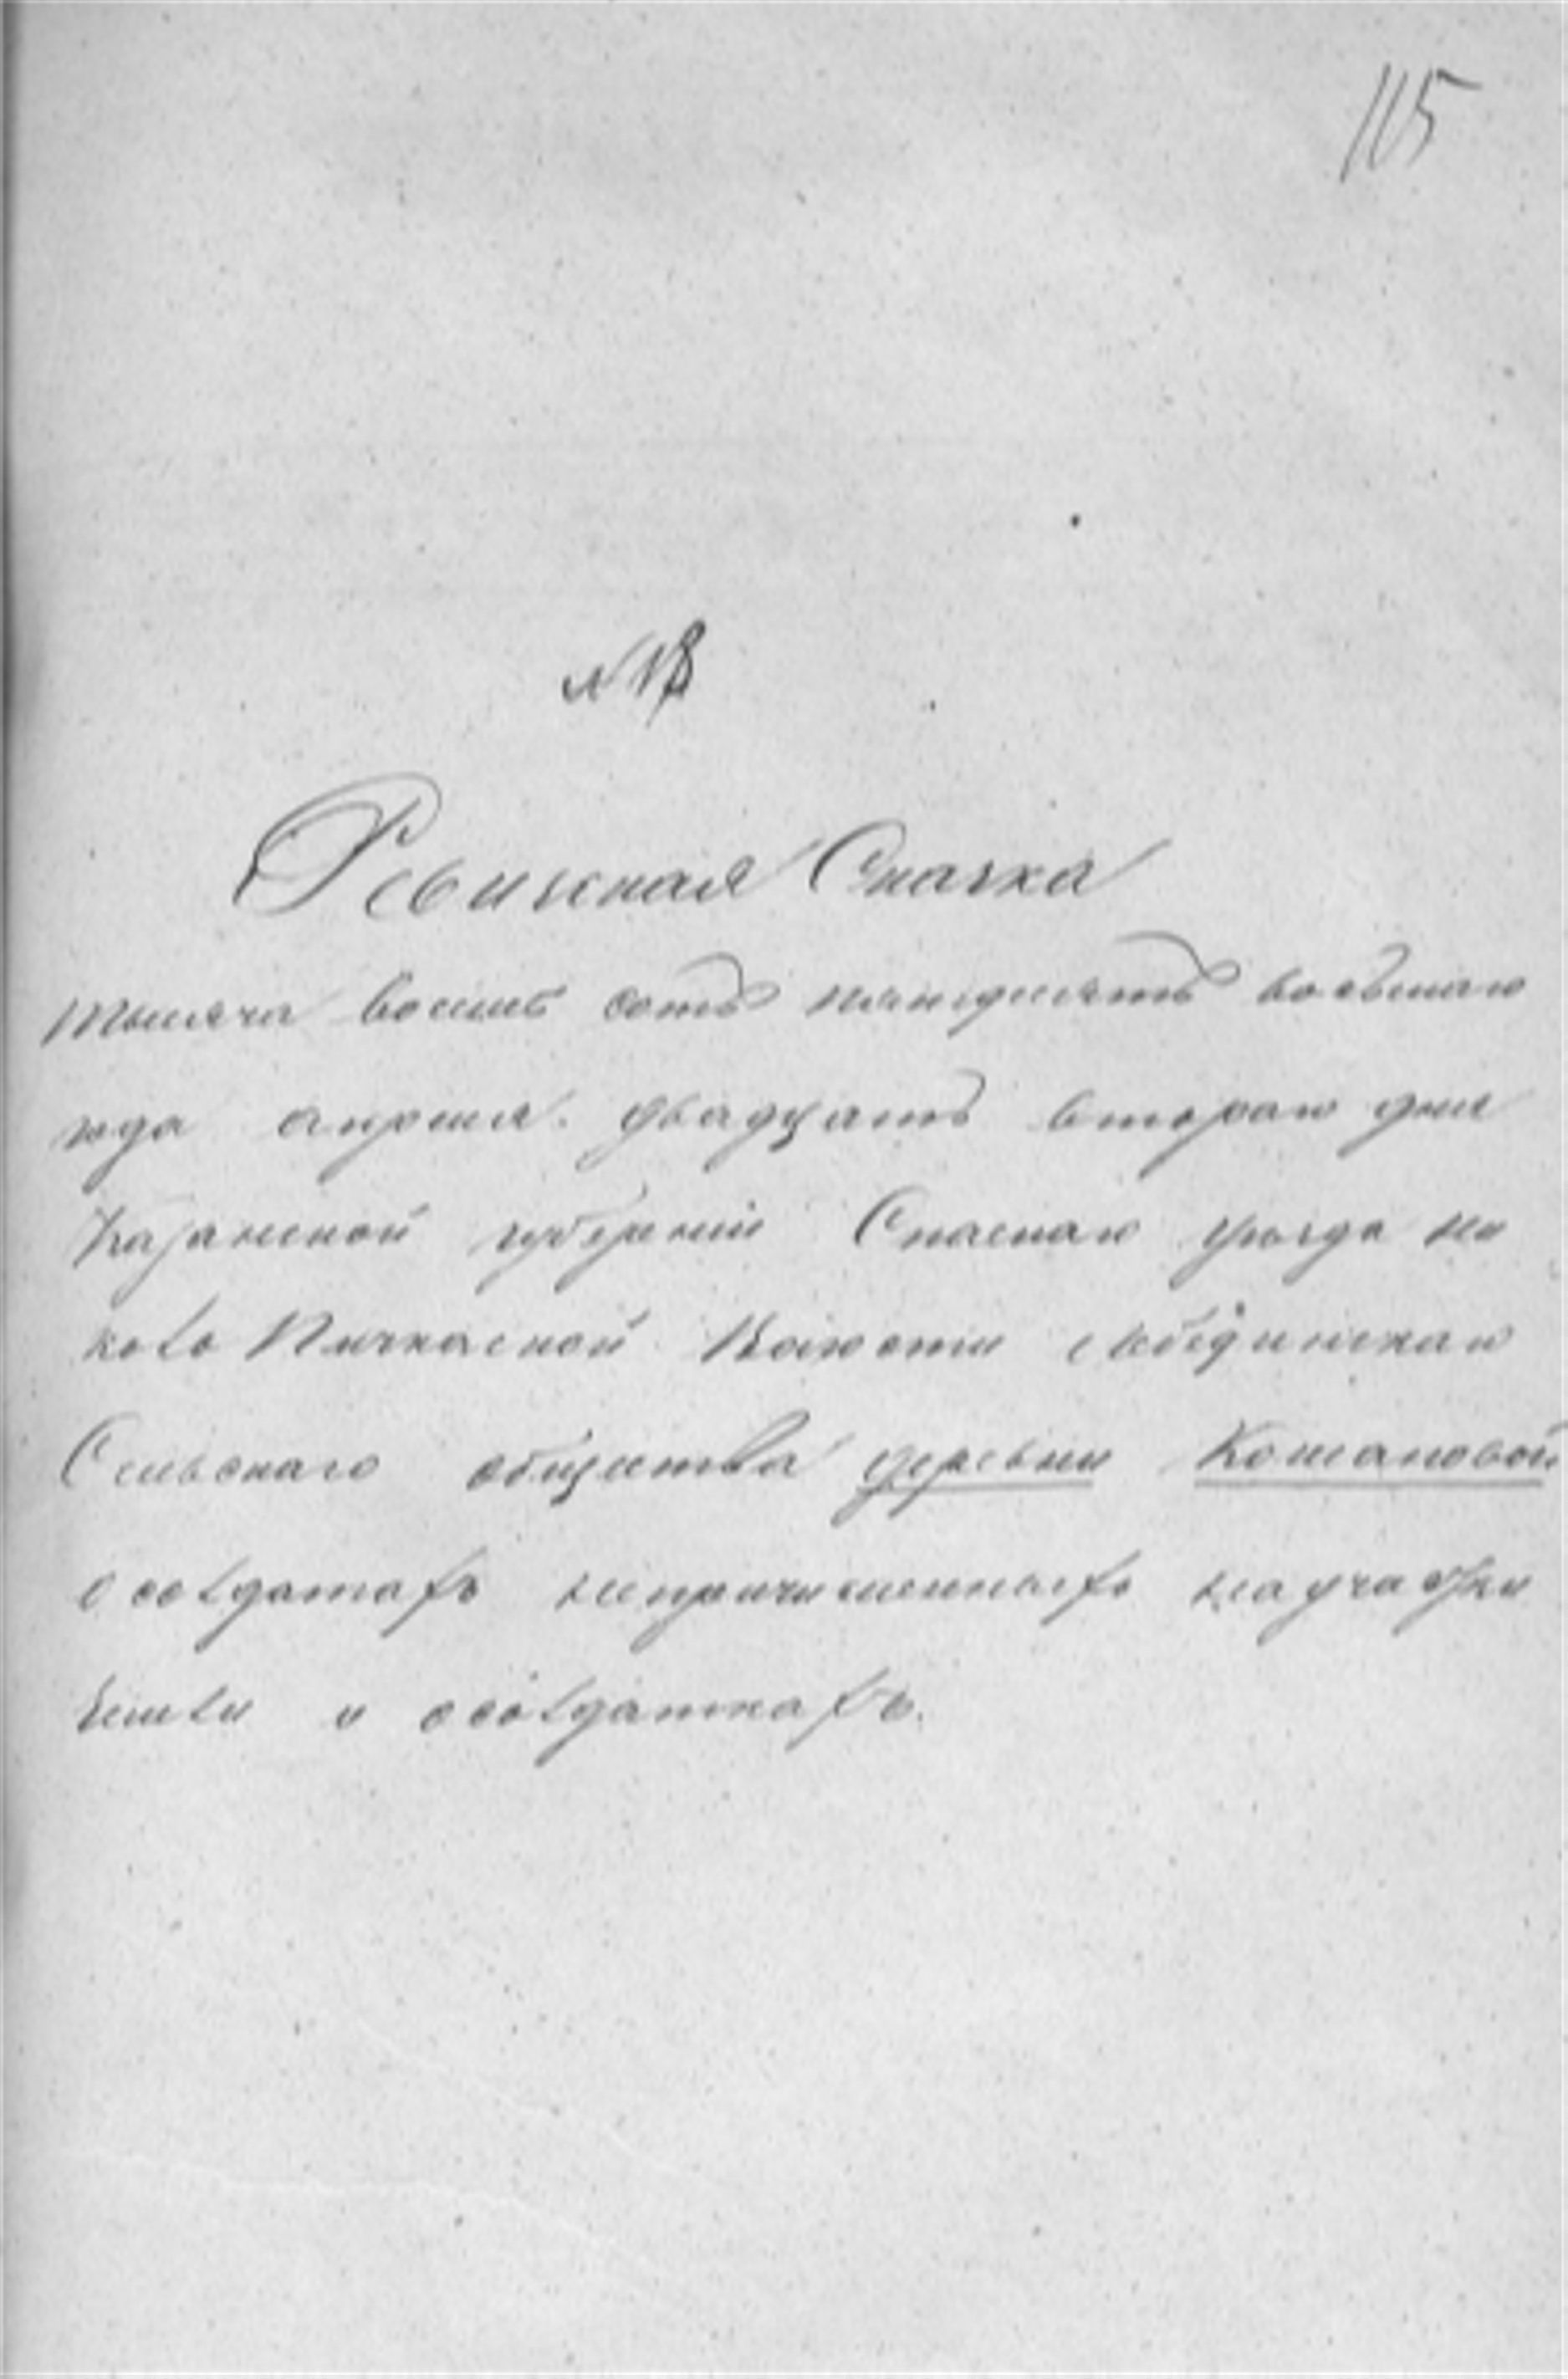 115
№ 18
Ревизская Сказка
тысяча восемь сотъ пятидесятъ восьмаго
года апреля двадцать втораго дня
Казанской губерніи Спаскаго уезда
Волости
Сельскаго общества деревни Кошановой
о солдатахъ непричисленныхъ
и о солдаткахъ.